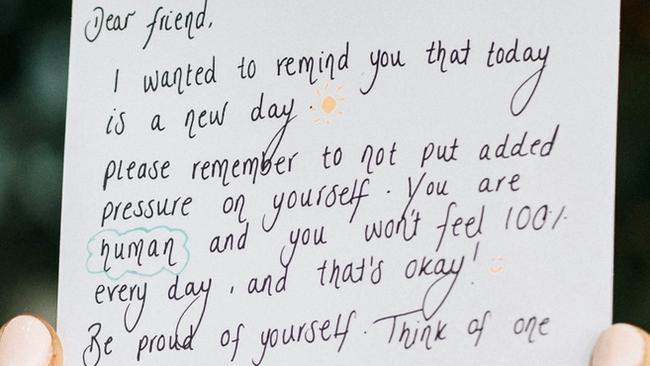 Dear friend,
I wanted to remind you that today
is a new day.
please remember to not put added
pressure on yourself. You are
human and you won't feel 100%
every day, and that's okay!
Be proud of yourself. Think of one